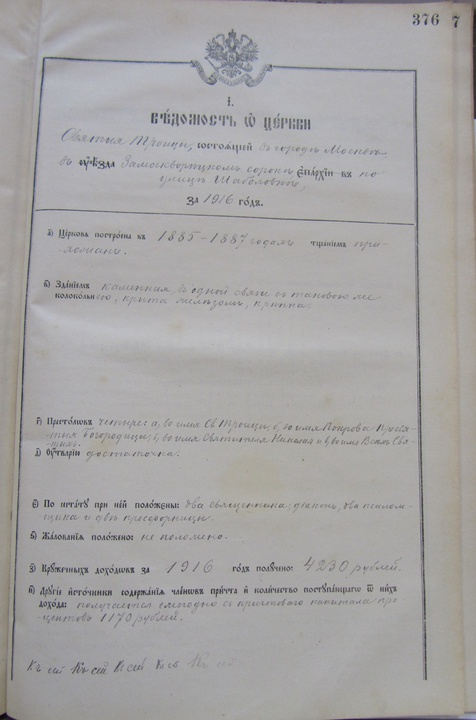 376 7
І.
Вѣдомость ѿ церкви
Святыя Троицы, состоящей въ городѣ Москвѣ
въ уѣзда Замоскворѣцкомъ сорокѣ епархіи въ по
улицѣ Шаболовкѣ,
за 1916 годъ.
а) Церковь построена въ 1885-1887 годахъ тщаніемъ при-
хожанъ.
в) Зданіемъ каменная, въ одной связи съ таковою же
колокольнею, крыта желѣзомъ, крѣпка.
г) Престоловъ четыре: а, во имя Св. Троицы, б, во имя Покрова Пресвя-
тыя Богородицы, в, во имя Святителя Николая и в, во имя Всѣхъ Свя-
тыхъ.
д) Оутварію достаточна.
є) По штату при ней положены: два священника, діаконъ, два псалом-
щика и двѣ просфорницы.
ѕ) Жалованія положено: не положено.
з) Кружечныхъ доходовъ за 1916 годъ получено: 4230 рублей.
и) Другіе источники содержанія членовъ причта и количество поступающаго ѿ нихъ
дохода: получается ежегодно съ причтоваго капитала про-
центовъ 1170 рублей.
Къ сей Къ сей Къ сей Къ